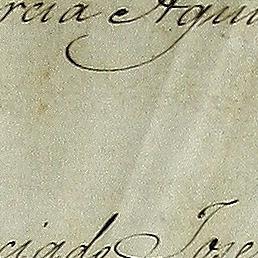 rcia Agui
ciado Jose